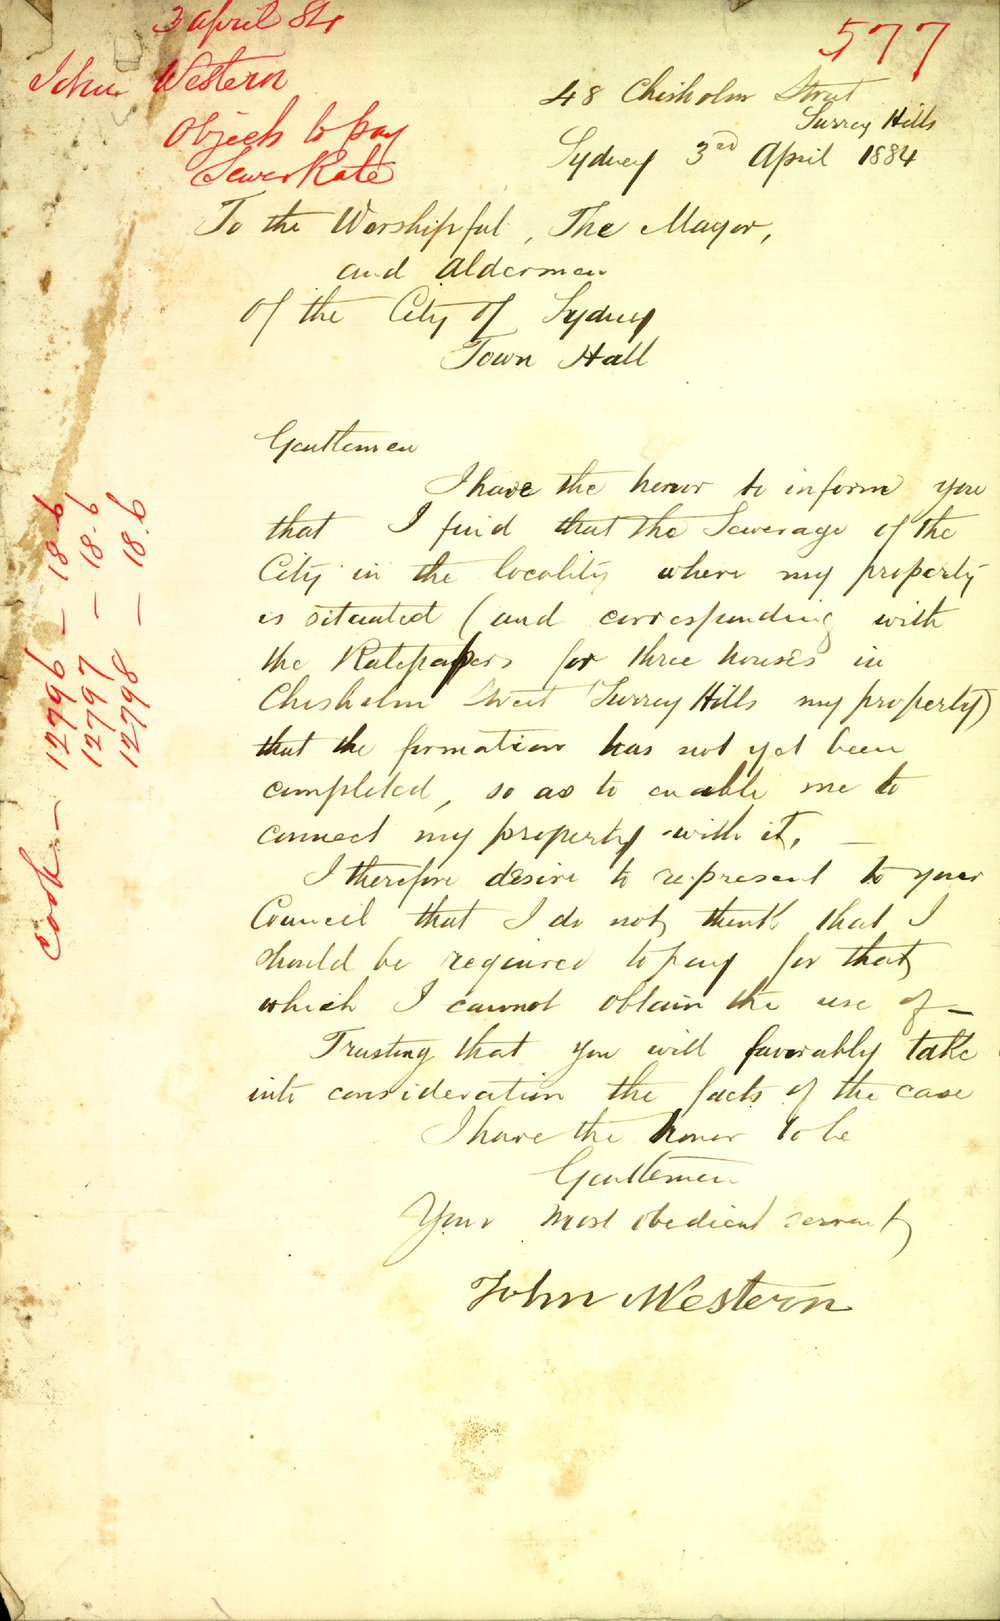 3 april 84
577
John Western
Objects to pay
Sewer Rate
48 Chisholm Street
Surrey Hills
Sydney 3rd April 1884
To the Worshipful, The Mayor,
and Aldermen
of the City of Sydney
Town Hall
Gentlemen
I have the honor to inform you
that I find that the Sewerage of the
City in the locality where my property
is situated (and corresponding with
the Ratepapers for three houses in
Chisholm Street Surrey Hills my property)
that the formation has not yet been
completed, so as to enable me to
connect my property with it. —
I therefore desire to represent to your
Council that I do not think that I
should be required to pay for that
which I cannot obtain the use of —
Trusting that you will favorably take
into consideration the facts of the case
I have the honor to be
Gentlemen
Your most obedient servant
John Western
Cook — 12796 — 18.6
12797 — 18.6
12798 — 18.6